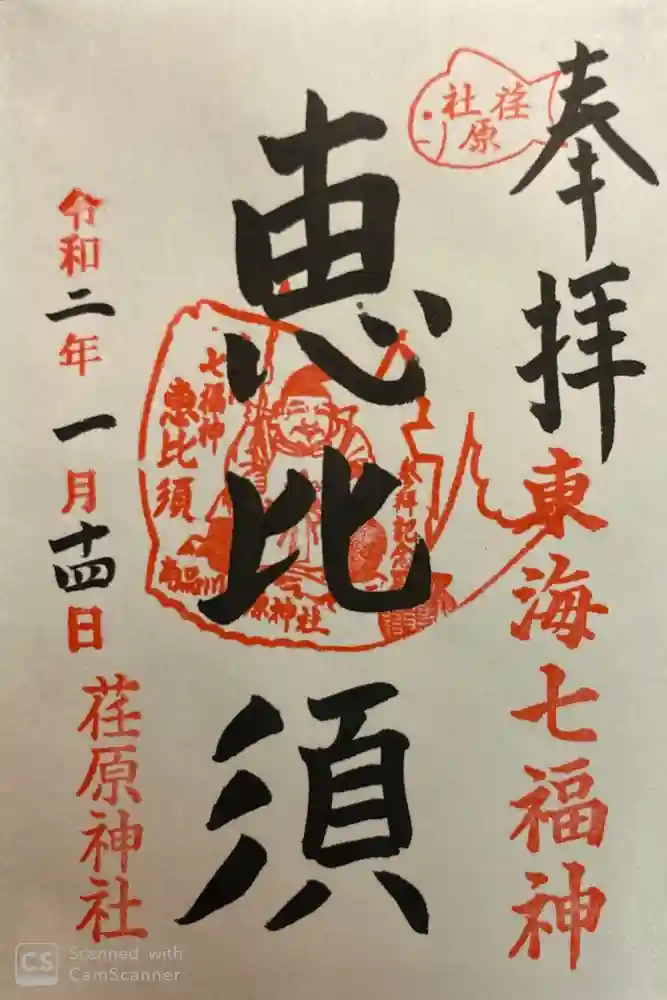 奉拝
東海七福神
荏原社
恵比須
七福神
恵比須
参拝記念
南品川
原神社
令和二年一月十四日
荏原神社
CS Scanned with
CamScanner